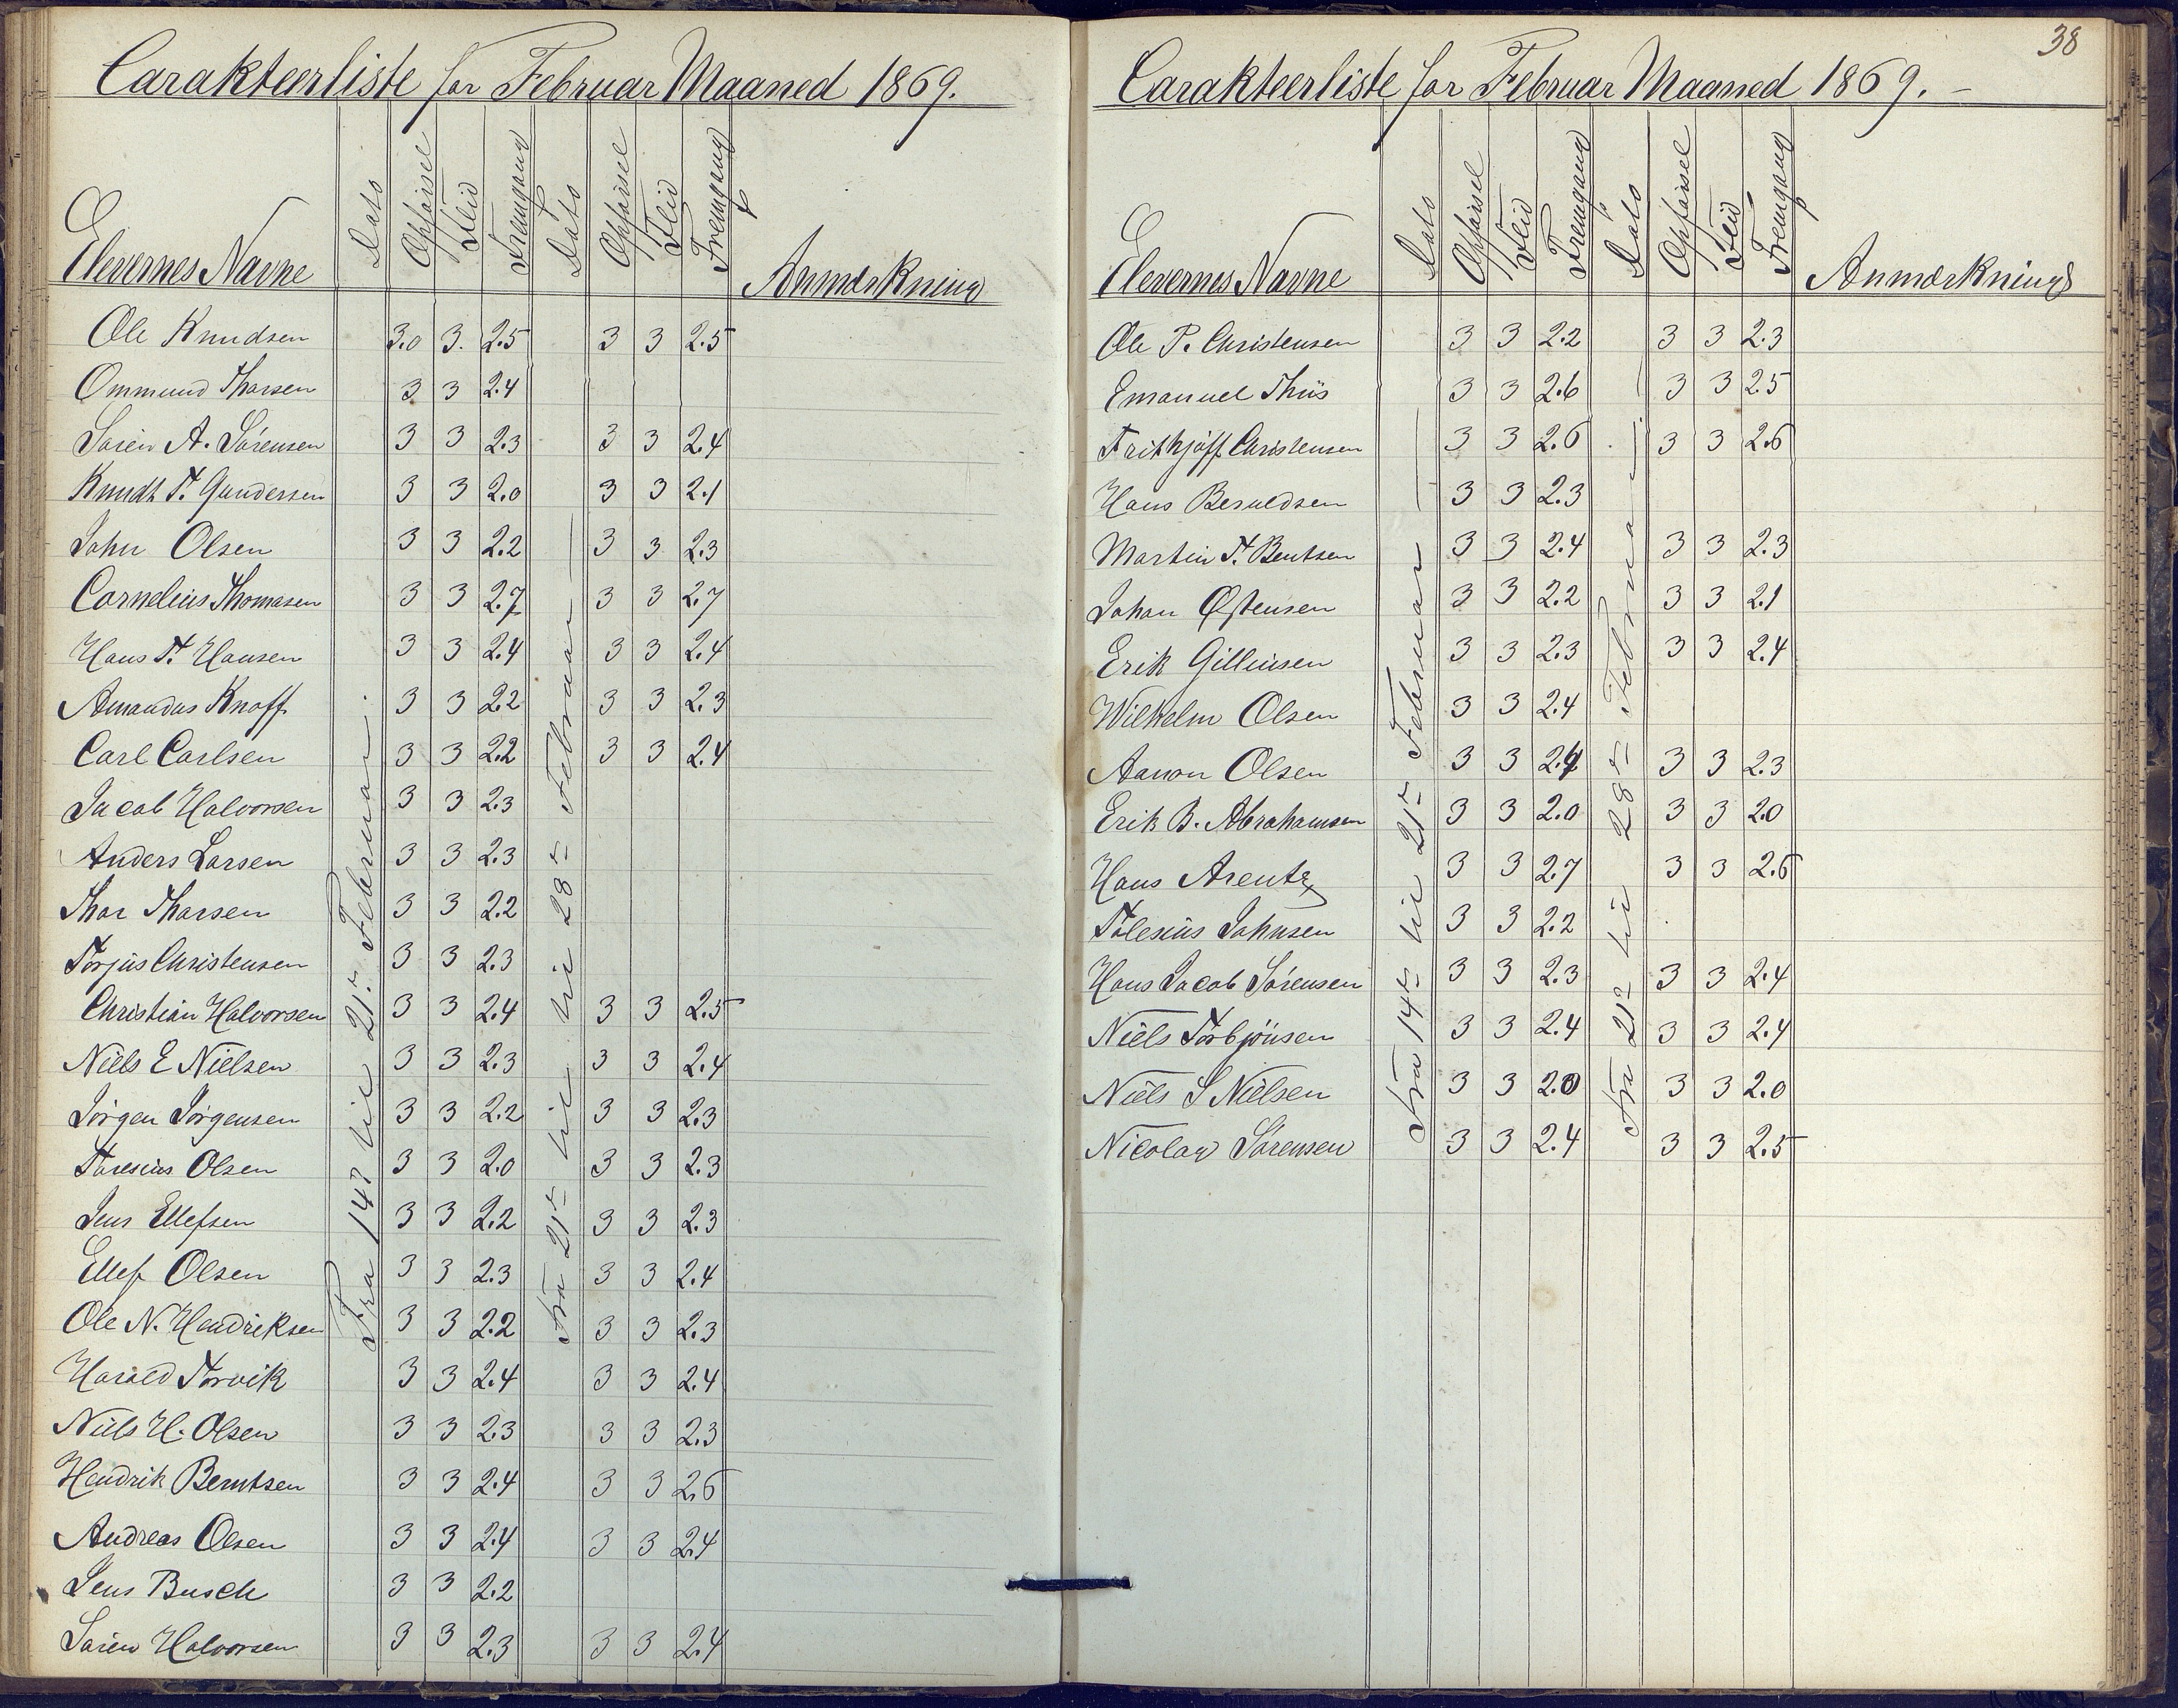 Carakteerliste for Februar Maaned 1869.
Elevernes Navne Dato Opförsel Flid Fremgang Dato Opförsel Flid Fremgang Anmærkning
Fra 14de til 21de Februar.
Fra 21de til 28de Februar
Ole Knudsen 3.0 3. 2.5 3 3 2.5
Ommund Thorsen 3 3 2.4
Sören A. Sörensen 3 3 2.3 3 3 2.4
Knudt T. Gundersen 3 3 2.0 3 3 2.1
John Olsen 3 3 2.2 3 3 2.3
Cornelius Thomasen 3 3 2.7 3 3 2.7
Hans T. Hansen 3 3 2.4 3 3 2.4
Amandus Knoff 3 3 2.2 3 3 2.3
Carl Carlsen 3 3 2.2 3 3 2.4
Jacob Halvorsen 3 3 2.3
Anders Larsen 3 3 2.3
Thor Thorsen 3 3 2.2
Torjus Christensen 3 3 2.3
Christian Halvorsen 3 3 2.4 3 3 2.5
Niels E Nielsen 3 3 2.3 3 3 2.4
Jörgen Jörgensen 3 3 2.2 3 3 2.3
Taresius Olsen 3 3 2.0 3 3 2.3
Jens Ellefsen 3 3 2.2 3 3 2.3
Ellef Olsen 3 3 2.3 3 3 2.4
Ole N. Hendriksen 3 3 2.2 3 3 2.3
Harald Torvik 3 3 2.4 3 3 2.4
Niels H. Olsen 3 3 2.3 3 3 2.3
Hendrik Berntsen 3 3 2.4 3 3 2.6
Andreas Olsen 3 3 2.4 3 3 2.4
Jens Busch 3 3 2.2
Sören Halvorsen 3 3 2.3 3 3 2.4
38
Carakteerliste for Februar Maaned 1869. –
Elevernes Navne Dato Opförsel Flid Fremgang Dato Opförsel Flid Fremgang Anmærkning
Fra 14de til 21de Februar
Fra 21de til 28de Februar
Ole P. Christensen 3 3 2.2 3 3 2.3
Emanuel Thiis 3 3 2.6 3 3 2.5
Frithjöff Christensen 3 3 2.6 3 3 2.6
Hans Beruldsen 3 3 2.3
Martin T. Bentsen 3 3 2.4 3 3 2.3
Johan Østensen 3 3 2.2 3 3 2.1
Erik Gilleinsen 3 3 2.3 3 3 2.4
Wilhelm Olsen 3 3 2.4
Aanon Olsen 3 3 2.4 3 3 2.3
Erik B. Abrahamsen 3 3 2.0 3 3 2.0
Hans Arentz 3 3 2.7 3 3 2.6
Tolesius Johnsen 3 3 2.2
Hans Jacob Sörensen 3 3 2.3 3 3 2.4
Niels Torbjönsen 3 3 2.4 3 3 2.4
Niels S Nielsen 3 3 2.0 3 3 2.0
Nicolay Sörensen 3 3 2.4 3 3 2.5